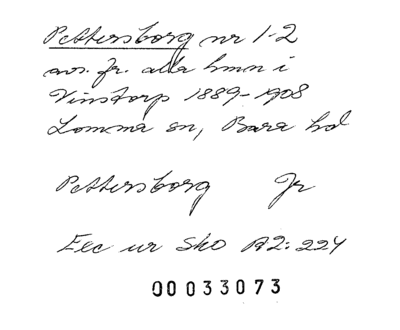 Pettersborg nr 1-2
avs. fr. alla hmn i
Vinstorp 1889-1908
Lomma sn, Bara hd
Pettersborg Jr
Exc ur Sko A2:224
00033073